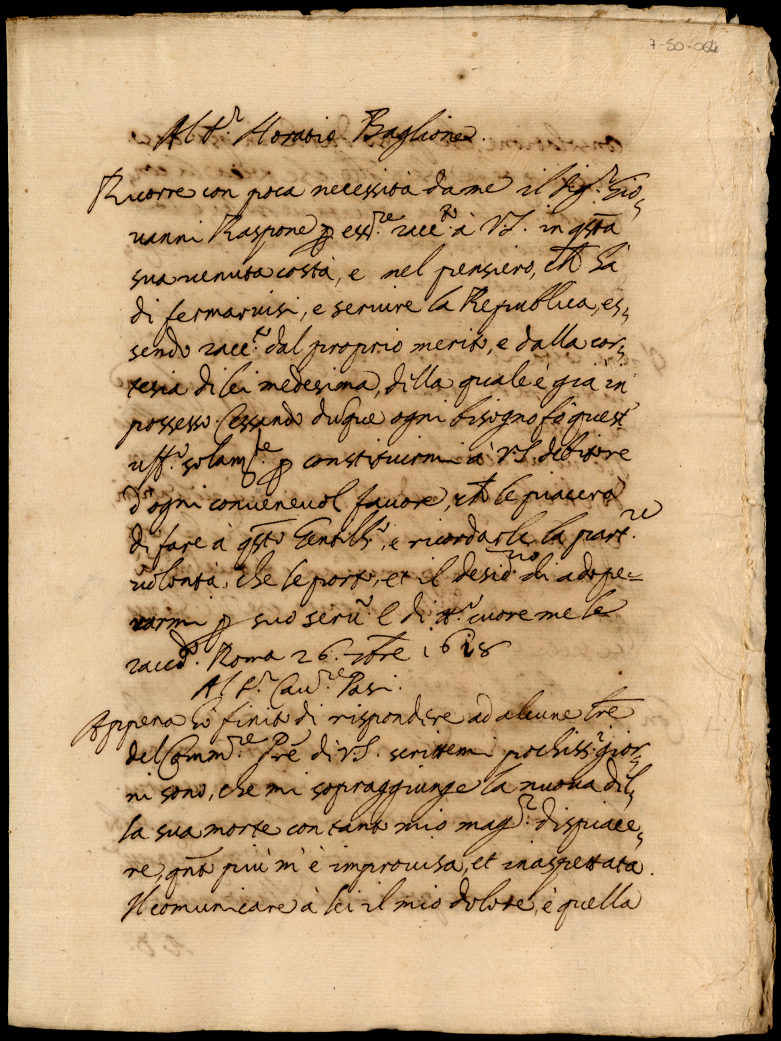 7-50-064
Al S.r Horatio Baglione.
Ricorre con poca necessità da me il Sig.r Gio-
vanni Raspone p ess.re racc.to à V.S. in qsta
sua venuta costà, e nel pensiero, ch hà
di fermarvisi, e servire la Republica, es-
sendo racc.to dal proprio merito, e dalla cor-
tesia di lei medesima, della quale è già in
possesso. Cessando duque ogni bisogno fò quest'
uff.o solam.te p constituirmi à V.S. debitore
d'ogni convenevol favore, ch le piacerà
di fare à qsto Gentilh.o, e ricordarle la part.re
volontà, che le porto, et il desid.rio di adope-
rarmi p suo serv.o E di tt.o cuore me le
racc.do. Roma 26. 7bre 1618
Al S.r Cav.re Pasi.
Appena hò finito di rispondere ad alcune lre
del Comm.re Pre di V.S. scrittemi pochiss.i gior-
ni sono, che mi sopraggiunge la nuova del-
la sua morte con tanto mio mag.r dispiace-
re, qnto più m'è improvisa, et inaspettata.
Il comunicare à lei il mio dolore, è quella